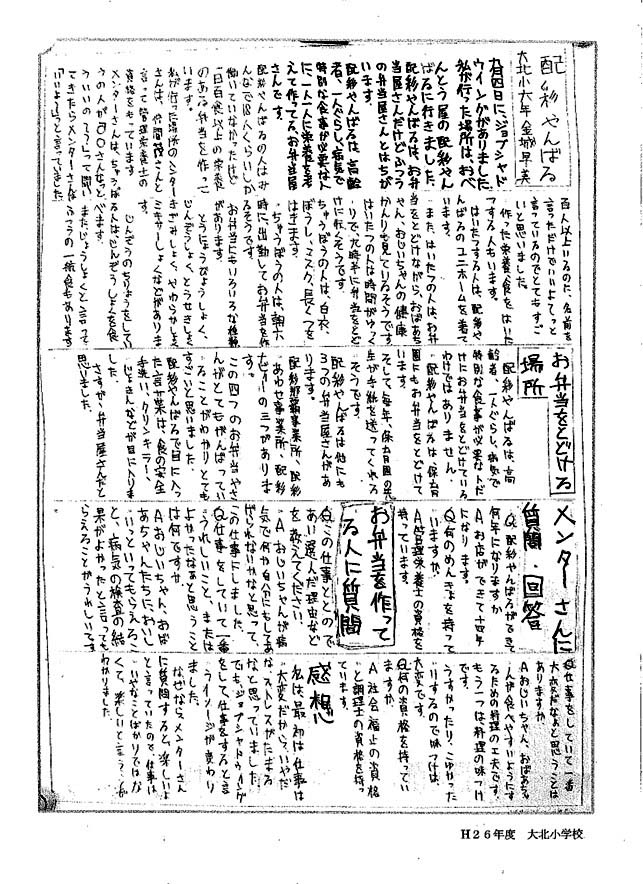 配彩やんばる
大北小六年 金城早美
九月四日に、ジョブシャド
ウィングがありました。
私が行った場所は、おべ
んとう屋の配彩やん
ばるに行きました。
配彩やんばるは、お弁
当屋さんだけどふつう
の弁当屋さんとはちが
います。
配彩やんばるは、高齢
者、一人ぐらし、病気で
特別な食事が必要な人
に、一人一人に栄養を考
えて作ってるお弁当屋
さんです。
配彩やんばるの人はみ
んなで十八人ぐらいしか
働いていなかったけど
一日百食以上の栄養
のある弁当を作って
います。
私が行った場所のメンター
さんは、仲間さんと
言って管理栄養士の
資格をもっています。
メンターさんは、ちゅうぼ
うの人が
ういいの
てきたらメンターさんは
「いいよー」っと言っていました。
百人以上いるのに、名前を
言っただけでいいよーってと
言っているのでとてもすご
いと思いました。
作った栄養食をはいた
つする人もいます。
はいたつする人は、配彩や
んばるのユニホームを着て
います。
また、はいたつの人は、お弁
当をとどけながら、おばあち
ゃん、おじいちゃんの健康
かんりを見ているそうです。
はいたつの人は時間がゆっく
りで、九時半に弁当をとど
けに行くそうです。
ちゅうぼうの人は、白衣、
ぼうし、マスク、長ぐつを
はきます。
ちゅうぼうの人は、朝六
時に出勤してお弁当を作
るそうです。
お弁当にもいろいろな種類
があります。
とうにょうびょうしょく、
じんぞうしょく、とうせきしょく、
きざみしょく、やわらかしょく、
ミキサーしょくなどがありま
す。
じんぞうのちりょうをしてい
る人は、じんぞうしょくを食
べます。
まだじょうしょくと言って
ふつうの一般食もあります。
お弁当をとどける
場所
配彩やんばるは、高
齢者、一人ぐらし、病気で
特別な食事が必要な人だ
けにお弁当をとどけている
わけではありません。
配彩やんばるは保育
園にもお弁当をとどけて
います。
そして、毎年、保育園の先
生が手紙を送ってくれる
そうです。
配彩やんばるは他にも
3つの弁当屋さんがあ
ります。
配彩那覇事業所、配彩
あわせ事業所、配彩
の三つがありま
す。
この四つのお弁当やさ
んがとてもがんばってい
ることがわかりとても
すごいと思いました。
配彩やんばるで目に入っ
た言葉は、食の安全
手洗い、クリンキラー、
じょきんなどが目に入りま
した。
さすが、弁当屋さんだと
思いました。
メンターさんに
質問・回答
Q 配彩やんばるができて
何年になりますか
A お店ができて十四年
になります。
Q 何のめんきょを持って
いますか。
A 管理栄養士の資格を
持っています。
お弁当を作って
る人に質問
Q この仕事ととので
あい選んだ理由など
を教えてください。
A おじいちゃんが病
気で何か自分にもしてあ
げられないかなと思って、
この仕事にしました。
Q 仕事をしていて一番
うれしいこと、または
よかったなぁと思うこと
は何ですか
A おじいちゃん、おば
あちゃんたちにおいし
いっといってもらえるこ
と、病気の検査の結
果がよかったと言っても
らえることがうれしいです。
Q 仕事をしていて一番
大変だなぁと思うことは
ありますか
A おじいちゃん、おばあちゃ
んが食べやすいようにす
るための料理の工夫です。
もう一つは、料理の味つけ
です。
うすかったり、こゆかった
りするので味つけは、
大変です。
Q 何の資格を持ってい
ますか。
A 社会福止の資格
と調理士の資格を持っ
ています。
感想
私は、最初は仕事は
大変だから、いやだ
なストレスがたまる
なと思っていました。
でも、ジョブシャドウィング
をして、仕事をすると言
うイメージが変わり
ました。
なぜなら、メンターさん
に質問すると、楽しいよ
と言っていたので、仕事は
いやなことばかりではな
くて、楽しいと言う
わかりました。
H26年度 大北小学校